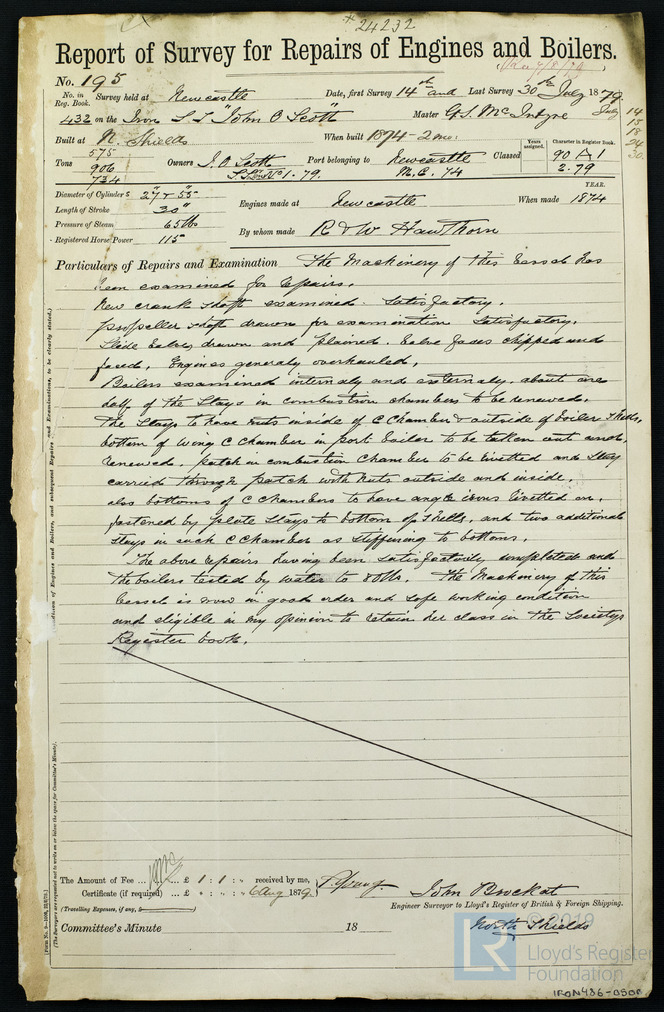 24232
Report of Survey for Repairs of Engines and Boilers.
No. 195
No. in Reg. Book. Survey held at Newcastle Date, first Survey 14th and Last Survey 30th July 1879
432 on the Iron S.S. "John O Scott" Master G.S. McIntyre
July 14
15
18
24
30
Built at N. Shields When built 1874 - 2 mo: Years assigned. Character in Register Book.
Tons 575 906 734 Owners J.O. Scott Port belonging to Newcastle Classed 90 A 1
No 1. 79. M.C. 74 2.79
Diameter of Cylinders 27 & 55" Engines made at Newcastle When made YEAR. 1874
Length of Stroke 30"
Pressure of Steam 65 lbs By whom made R & W Hawthorn
Registered Horse Power 115
Particulars of Repairs and Examination The Machinery of this Vessel has
been examined for repairs.
New crank shaft examined. Satisfactory.
propeller shaft drawn for examination Satisfactory.
Slide Valves drawn and plained. Valve faces chipped and
faced. Engines generaly overhauled.
Boilers examined internaly and externaly. about one
half of the Stays in combustion chambers to be renewed.
The Stays to have nuts inside of C Chamber & outside of boiler Shells,
bottom of wing C Chamber in port boiler to be taken out and
renewed. patch in combustion Chamber to be rivetted and Stay
carried through patch with nuts outside and inside.
also bottoms of C Chambers to have angle irons rivetted on,
fastened by plate Stays to bottom of Shells, and two additional
Stays in each C Chamber as stiffening to bottoms.
The above repairs having been Satisfactorily completed and
the boilers tested by water to lbs. The Machinery of this
Vessel is now in good order and safe working condition
and eligible in my opinion to retain her class in the Societys
Register book.
The Amount of Fee ... £ 1 : 1 : " received by me,
Certificate (if required) ... £ " : " : " 6 Aug 1879
(Travelling Expenses, if any, £ )
John Brockat
Engineer Surveyor to Lloyd's Register of British & Foreign Shipping.
Committee's Minute 18 North Shields
© 2019
LR Lloyd's Register
Foundation
IRON436-0508